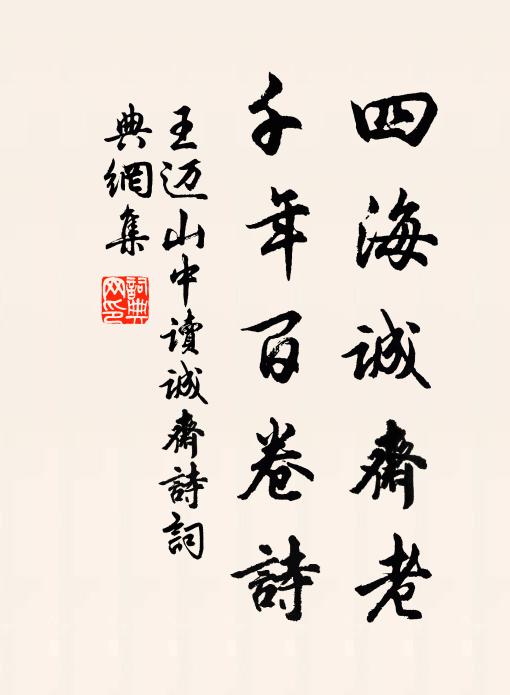 四海誠齋老
千年百卷詩
王迈山中讀誠齋詩詞
典網集
詞典
网印